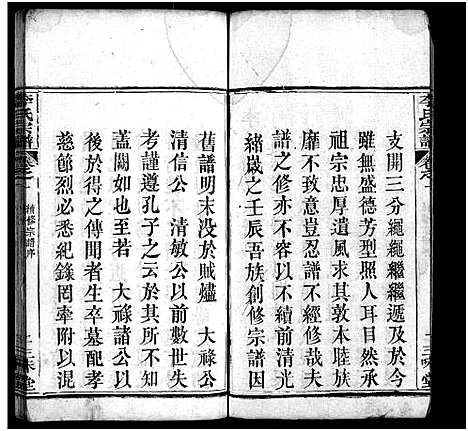 支開三分繩繩繼繼遞及於今
雖無盛德芳型照人耳目然承
祖宗忠厚遺風求其敦本睦族
靡不慨意豈忍譜不經修哉夫
譜之修亦不容以不續前光緒
緒歲之壬辰吾族創修宗譜因
舊譜明末没於賊爐 大祿公
清信公 清敏公以前數世失
考謹遵孔子之云於其所不知
蓋闕如也至若 大祿諸公以
後於得傳聞者生卒墓配孝
慈節烈必悉紀錄罔牽附以混
李氏宗譜
卷之一
續修宗譜序
二
三味堂
李氏宗譜
卷之一
三味堂